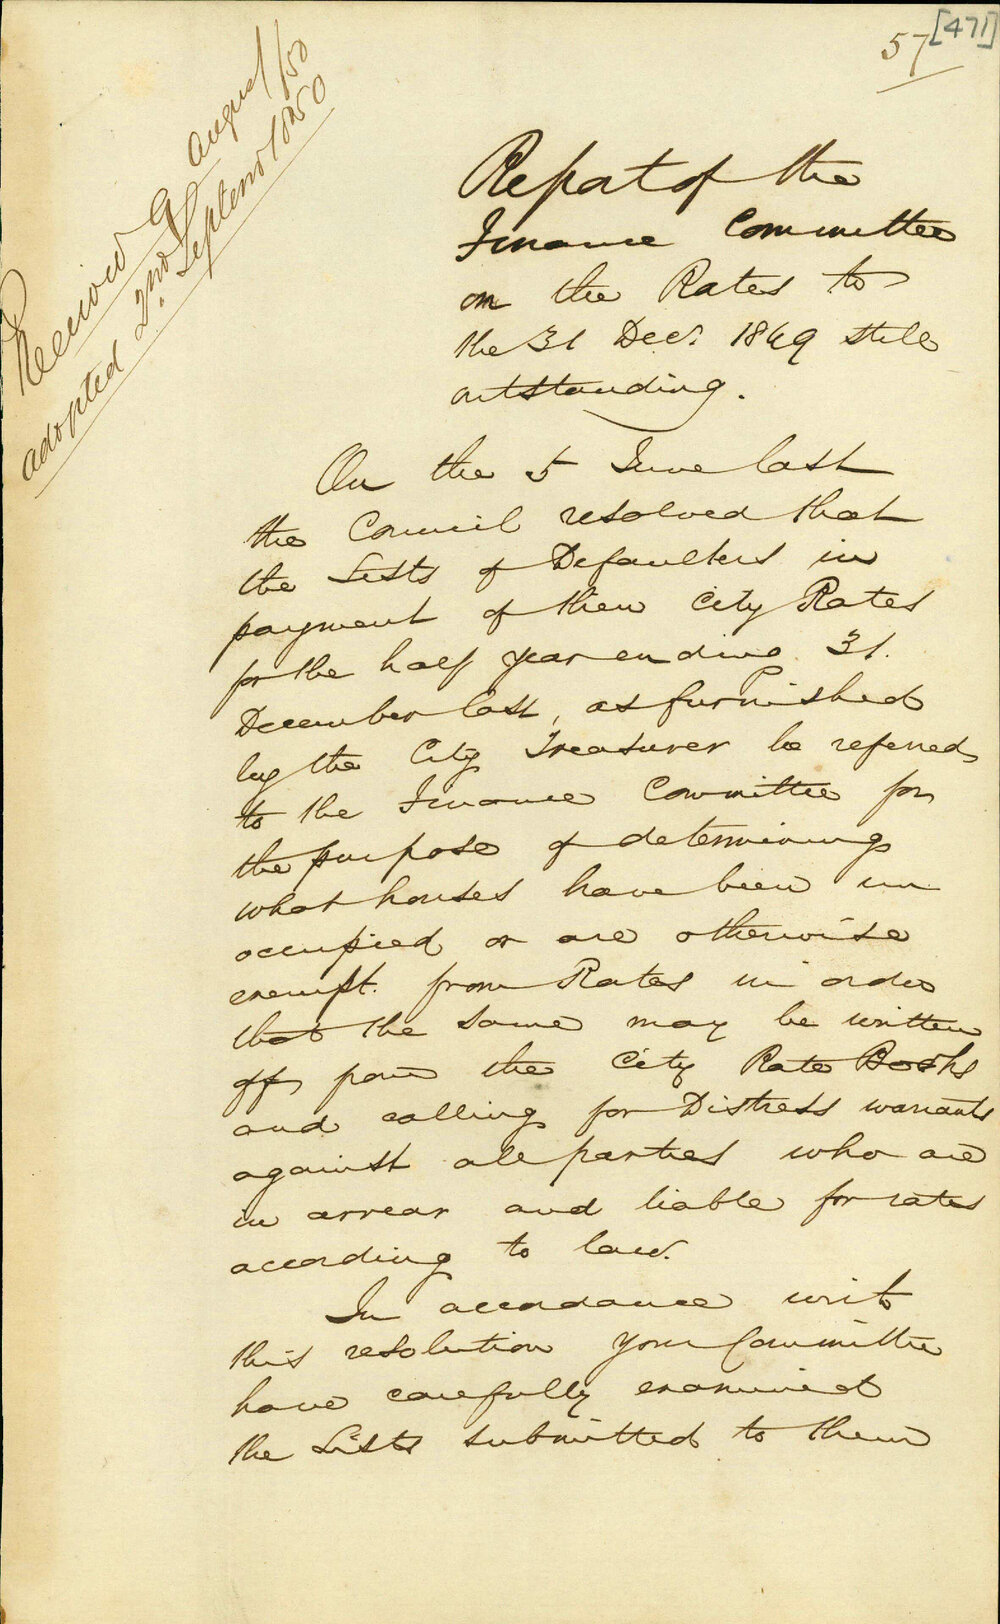 57 [471]
Received 9 August/50
adopted 2nd. Septemr 1850
Report of the
Finance Committee
on the Rates to
the 31 Decr. 1849 still
outstanding.
On the 5 June last
the Council resolved that
the Lists of Defaulters in
payment of their City Rates
for the half year ending 31.
December last, as furnished
by the City Treasurer be referred
to the Finance Committee for
the purpose of determining
what houses have been un
occupied or are otherwise
exempt. from Rates in order
that the same may be written
off from the City Rate Books
and calling for Distress warrants
against all parties who are
in arrear and liable for rates
according to law.
In accordance with
this resolution your Committee
have carefully examined
the Lists submitted to them